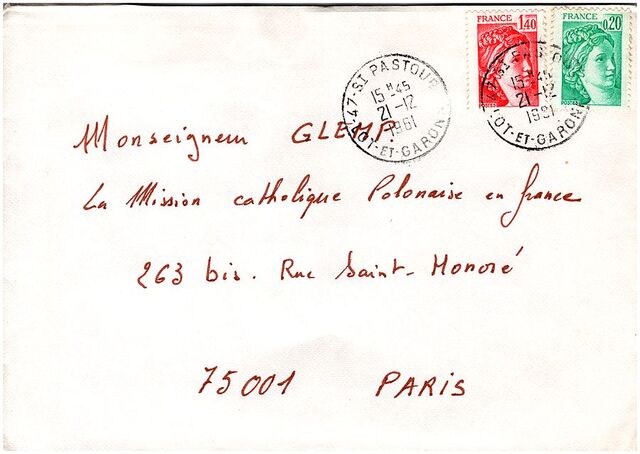 FRANCE 1,40
FRANCE 0,20
47-ST PASTOUR
15 H 45
21-12
1981
LOT-ET-GARONNE
15 H 45
21-12
1981
LOT-ET-GARONNE
Monseigneur GLEMP.
La Mission catholique Polonaise en france
263 bis. Rue Saint-Honoré
75001 PARIS